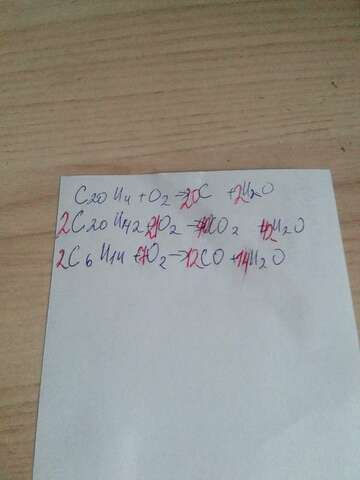 C20H4+O2→20C +2H2O
2C20H42+21O2→40CO2 42H2O
2C6H14+7O2→12CO+14H2O